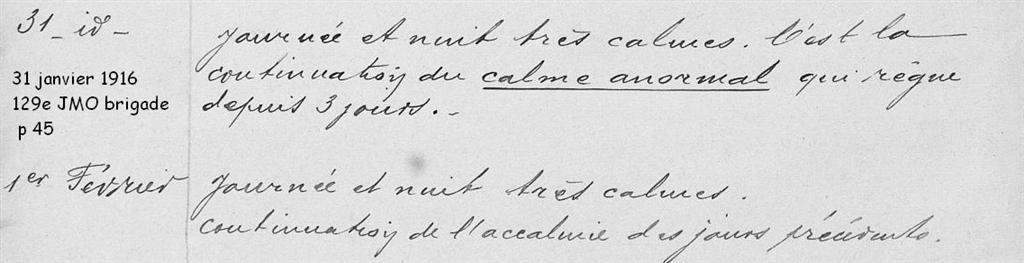 31 _ id _
Journée et nuit très calmes. C'est la
continuation du calme anormal qui règne
depuis 3 jours. _
31 janvier 1916
129e JMO brigade
p 45
1er Février
Journée et nuit très calmes.
continuation de l'accalmie des jours précédents.